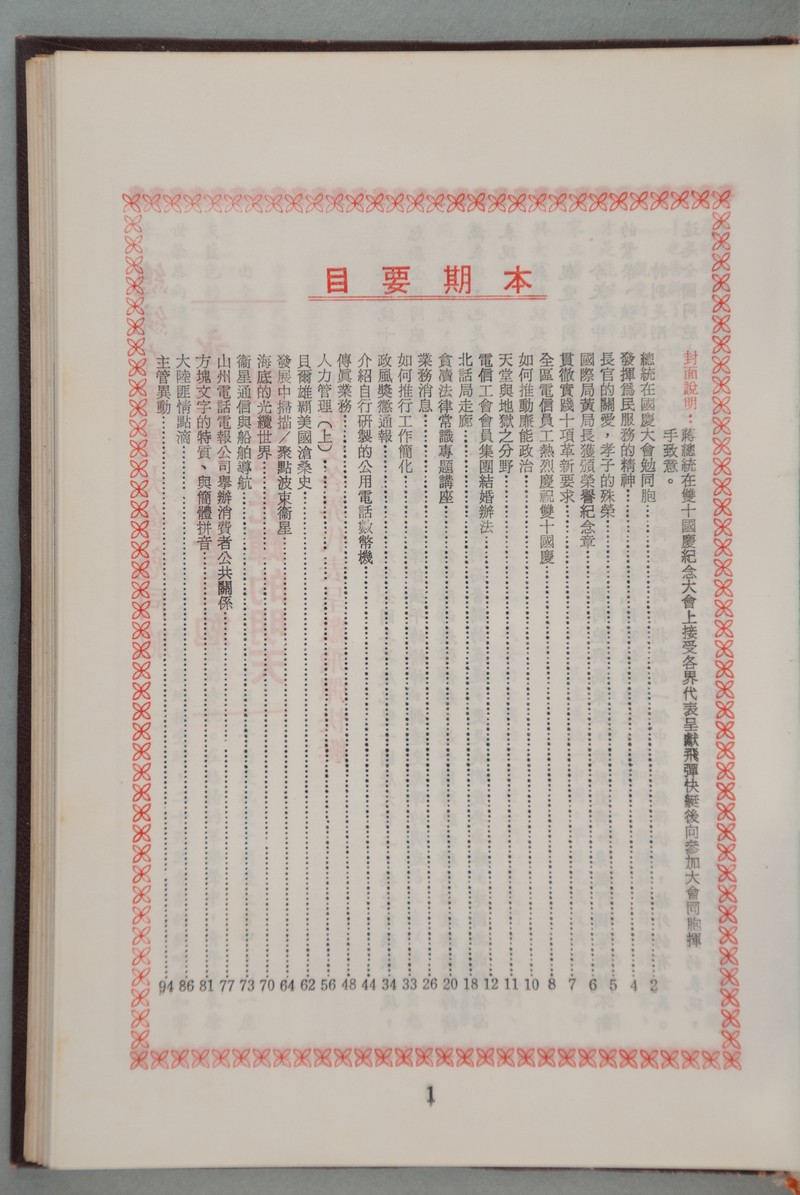 本期要目
封面說明：蔣總統在雙十國慶紀念大會上接受各界代表呈獻飛彈快艇後向參加大會同胞揮
手致意。
總統在國慶大會勉同胞……2
發揮爲民服務的精神……4
長官的關愛，孝子的殊榮……5
國際局黃局長獲頒榮譽紀念章……6
貫徹實踐十項革新要求……7
全區電信員工熱烈慶祝雙十國慶……8
如何推動廉能政治……10
天堂與地獄之分野……11
電信工會會員集團結婚辦法……12
北話局走廊……18
貪瀆法律常識專題講座……20
業務消息……26
如何推行工作簡化……33
政風獎懲通報……34
介紹自行研製的公用電話數幣機……44
傳眞業務……48
人力管理（上）……56
貝爾雄覇美國滄桑史……62
發展中掃描／聚點波束衞星……64
海底的光纜世界……70
衞星通信與船舶導航……73
山州電話電報公司舉辦消費者公共關係……77
方塊文字的特質、與簡體拼音……81
大陸匪情點滴……86
主管異動……94
1